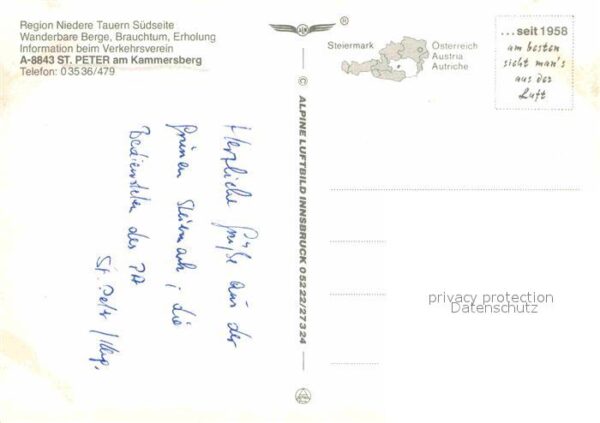 Region Niedere Tauern Südseite
Wanderbare Berge, Brauchtum, Erholung
Information beim Verkehrsverein
A-8843 ST. PETER am Kammersberg
Telefon: 03536/479
®
Steiermark
Österreich
Austria
Autriche
...seit 1958
am besten
sieht man's
aus der
Luft
© ALPINE LUFTBILD INNSBRUCK 05222/27324
Herzliche Grüße aus der
grünen Steiermark, die
Bediensteten des PA
St. Peter/Kbg.
privacy protection
Datenschutz